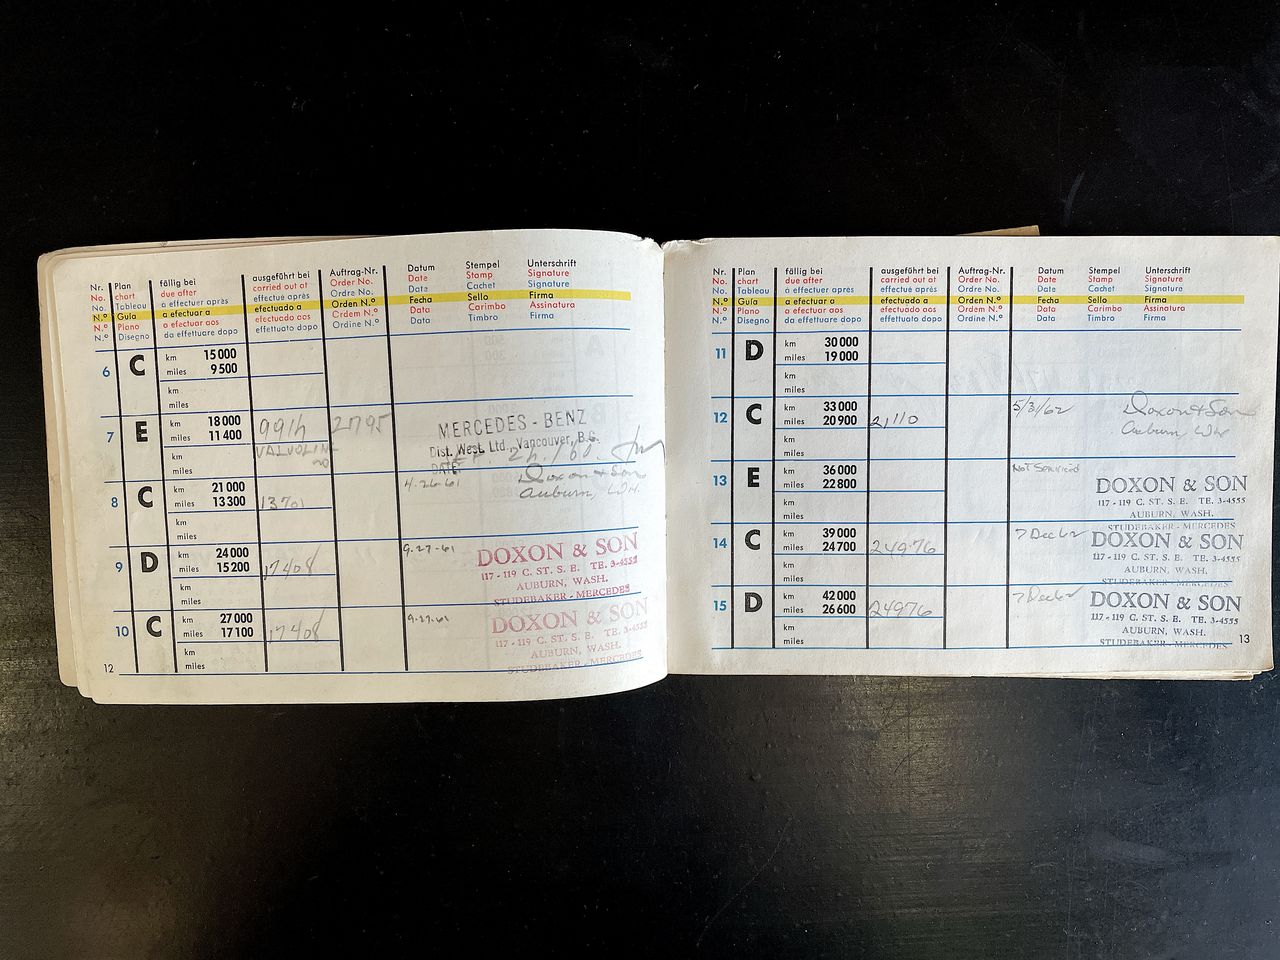 Nr. Plan fällig bei ausgeführt bei Auftrag-Nr. Datum Stempel Unterschrift
No. chart due after carried out at Order No. Date Stamp Signature
No. Tableau à effectuer après effectué après Ordre No. Date Cachet Signature
N.º Guía a efectuar a efectuado a Orden N.º Fecha Sello Firma
N.º Plano a efectuar aos efectuado aos Ordem N.º Data Carimbo Assinatura
N.º Disegno da effettuare dopo effettuato dopo Ordine N.º Data Timbro Firma
6 C km 15 000
miles 9 500
km
miles
7 E km 18 000
miles 11 400 9914 2795
km VALVOLINE
miles
MERCEDES - BENZ
Dist. West. Ltd., Vancouver, B.C.
DATE:
8 C km 21 000 4-26-61 Doxon & Son
miles 13 300 13701 Auburn, Wn.
km
miles
9 D km 24 000 9-27-61 DOXON & SON
miles 15 200 17408 117 - 119 C. ST. S. E. TE. 3-4555
km AUBURN, WASH.
miles STUDEBAKER - MERCEDES
10 C km 27 000 9-27-61 DOXON & SON
miles 17 100 17408 117 - 119 C. ST. S. E. TE. 3-4555
km AUBURN, WASH.
miles STUDEBAKER - MERCEDES
12
Nr. Plan fällig bei ausgeführt bei Auftrag-Nr. Datum Stempel Unterschrift
No. chart due after carried out at Order No. Date Stamp Signature
No. Tableau à effectuer après effectué après Ordre No. Date Cachet Signature
N.º Guía a efectuar a efectuado a Orden N.º Fecha Sello Firma
N.º Plano a efectuar aos efectuado aos Ordem N.º Data Carimbo Assinatura
N.º Disegno da effettuare dopo effettuato dopo Ordine N.º Data Timbro Firma
11 D km 30 000
miles 19 000
km
miles
12 C km 33 000 5/31/62 Doxon & Son
miles 20 900 21,110 Auburn, Wn
km
miles
13 E km 36 000 Not Serviced
miles 22 800 DOXON & SON
km 117 - 119 C. ST. S. E. TE. 3-4555
miles AUBURN, WASH.
STUDEBAKER - MERCEDES
14 C km 39 000 7 Dec 62 DOXON & SON
miles 24 700 24976 117 - 119 C. ST. S. E. TE. 3-4555
km AUBURN, WASH.
miles STUDEBAKER - MERCEDES
15 D km 42 000 7 Dec 62 DOXON & SON
miles 26 600 24976 117 - 119 C. ST. S. E. TE. 3-4555
km AUBURN, WASH.
miles STUDEBAKER - MERCEDES
13